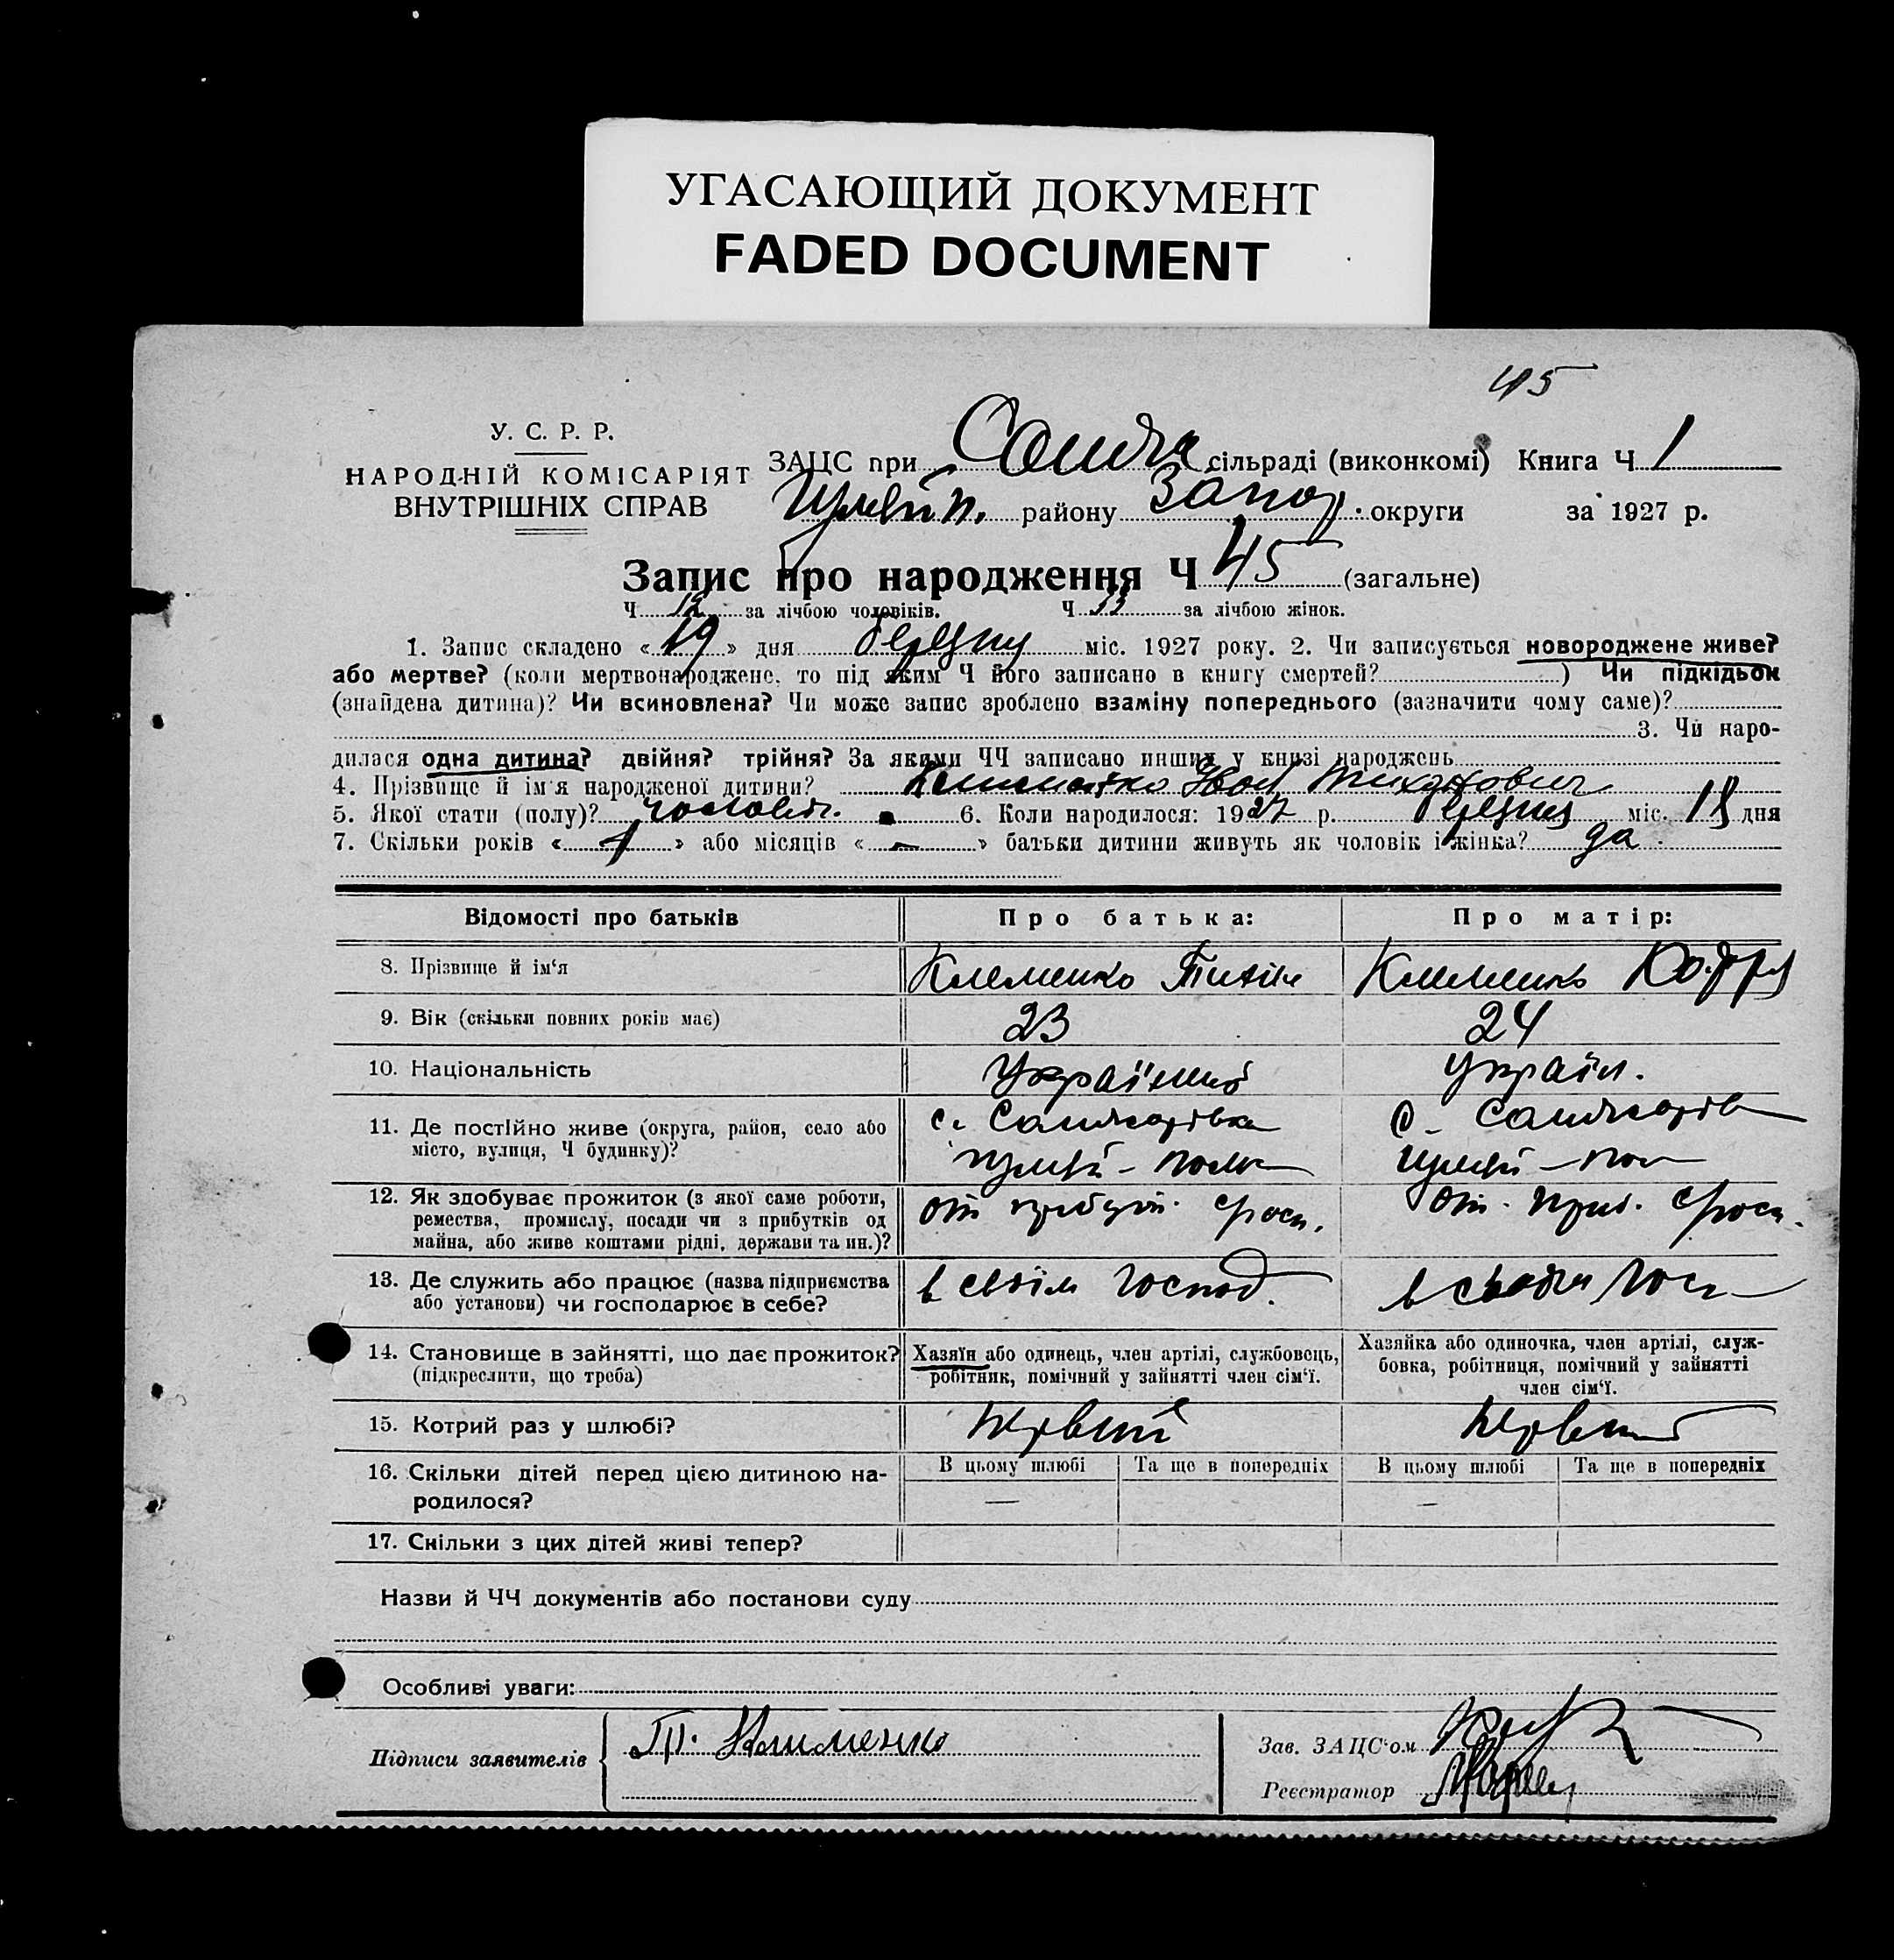 УГАСАЮЩИЙ ДОКУМЕНТ
FADED DOCUMENT
45
У. С. Р. Р.
НАРОДНІЙ КОМІСАРІЯТ
ВНУТРІШНІХ СПРАВ
ЗАЦС при сільраді (виконкомі) Книга Ч 1
району Запор. округи за 1927 р.
Запис про народження Ч 45 (загальне)
Ч 12 за лічбою чоловіків. Ч 33 за лічбою жінок.
1. Запис складено «19» дня березня міс. 1927 року. 2. Чи записується новороджене живе?
або мертве? (коли мертвонароджене, то під яким Ч його записано в книгу смертей? ) Чи підкідьок
(знайдена дитина)? Чи всиновлена? Чи може запис зроблено взаміну попереднього (зазначити чому саме)?
3. Чи наро-
дилася одна дитина? двійня? трійня? За якими ЧЧ записано инших у книзі народжень
4. Прізвище й ім'я народженої дитини? Клименко Іван Тихонович
5. Якої стати (полу)? чоловіч. 6. Коли народилося: 1927 р. березня міс. 18 дня
7. Скільки років «1» або місяців «—» батьки дитини живуть як чоловік і жінка? да.
Відомості про батьків Про батька: Про матір:
8. Прізвище й ім'я Клеменко Тихін Клименко
9. Вік (скільки повних років має) 23 24
10. Національність Український Україн.
11. Де постійно живе (округа, район, село або
місто, вулиця, Ч будинку)?
12. Як здобуває прожиток (з якої саме роботи,
ремества, промислу, посади чи з прибутків од
майна, або живе коштами рідні, держави та ин.)?
13. Де служить або працює (назва підприємства
або установи) чи господарює в себе?
в своїм господ.
14. Становище в зайнятті, що дає прожиток?
(підкреслити, що треба)
Хазяїн або одинець, член артілі, службовець,
робітник, помічний у зайнятті член сім'ї.
Хазяйка або одиночка, член артілі, служ-
бовка, робітниця, помічний у зайнятті
член сім'ї.
15. Котрий раз у шлюбі? первий первий
16. Скільки дітей перед цією дитиною на-
родилося?
В цьому шлюбі Та ще в попередніх В цьому шлюбі Та ще в попередніх
— —
17. Скільки з цих дітей живі тепер?
Назви й ЧЧ документів або постанови суду
Особливі уваги:
Підписи заявителів Т. Клименко
Зав. ЗАЦС'ом
Реєстратор